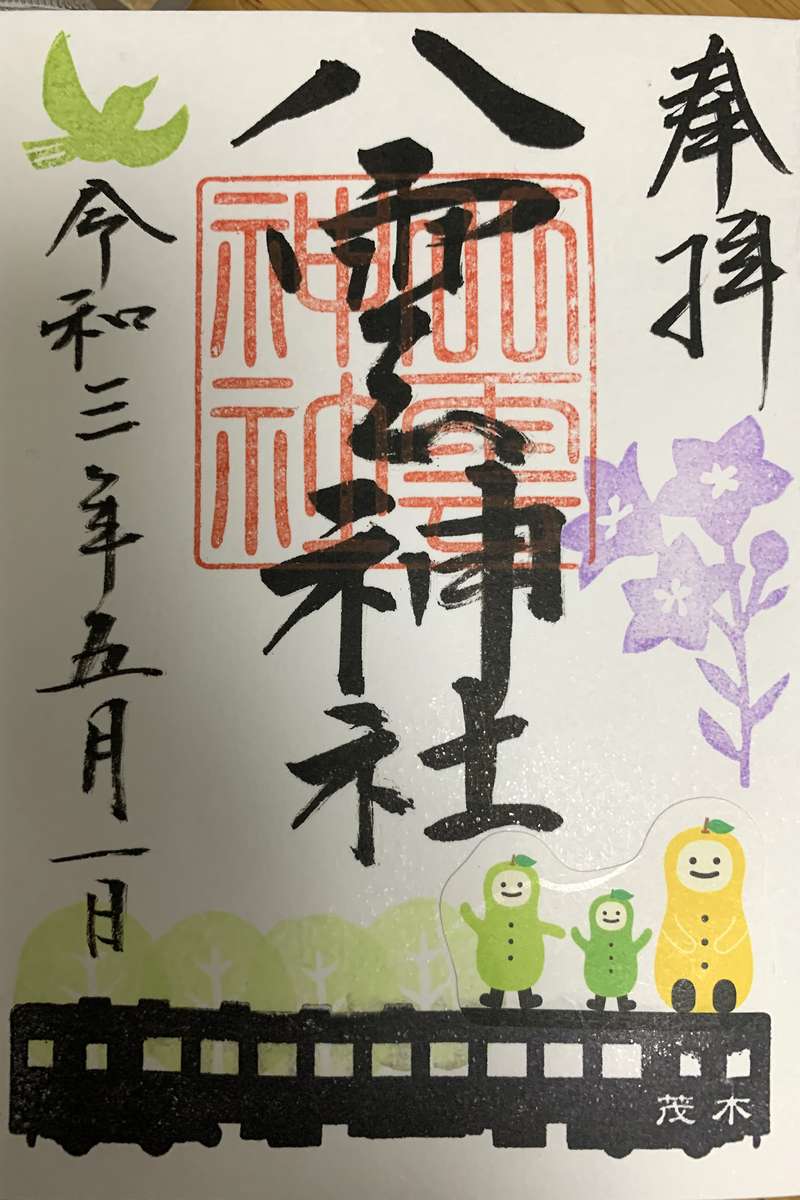 奉拝
八雲神社
八雲神社
令和三年五月一日
茂木